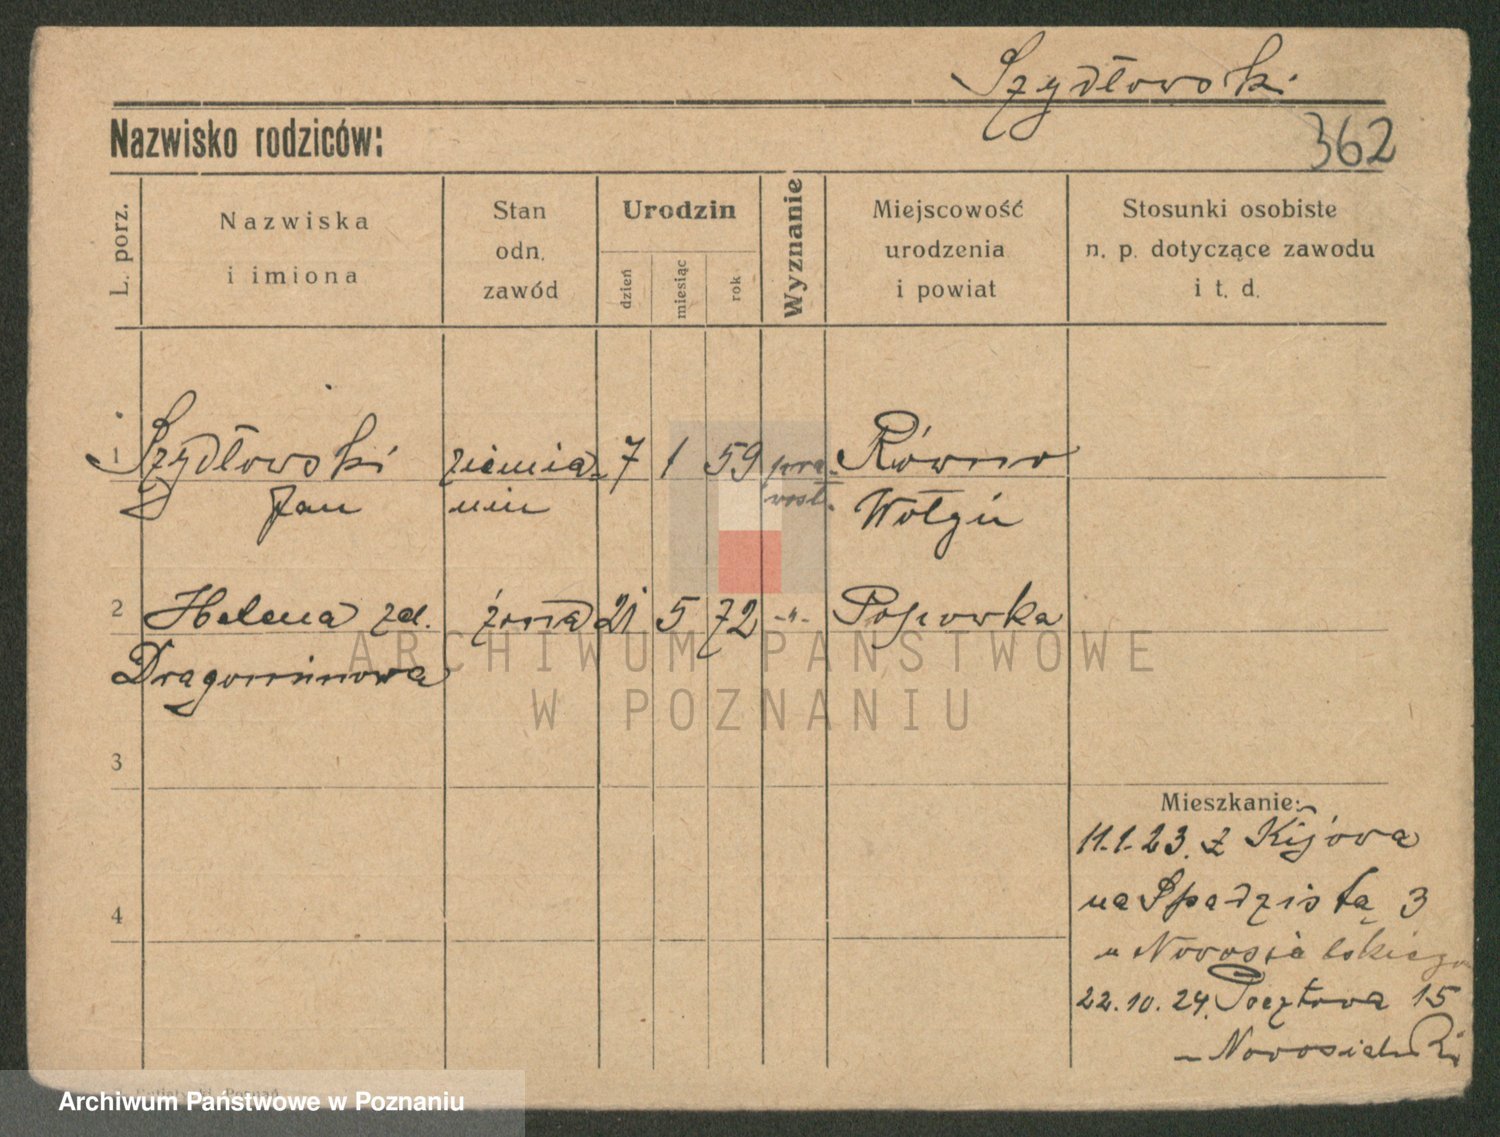 Szydłowski
Nazwisko rodziców:
362
L. porz.
Nazwiska
i imiona
Stan
odn.
zawód
Urodzin
dzień
miesiąc
rok
Wyznanie
Miejscowość
urodzenia
i powiat
Stosunki osobiste
n. p. dotyczące zawodu
i t. d.
1 Szydłowski ziemia- 7 1 59 pra- Równo
Jan nin wosł. Wołyń
2 Helena zd. żona 21 5 72 -"- Popowka
Dragomirowa
3
Mieszkanie:
11.1.23. z Kijowa
4
na Spadzistą 3
u Nowosielskiego
22.10.24. Pocztowa 15
- Nowosielski
ARCHIWUM PAŃSTWOWE
W POZNANIU
Archiwum Państwowe w Poznaniu